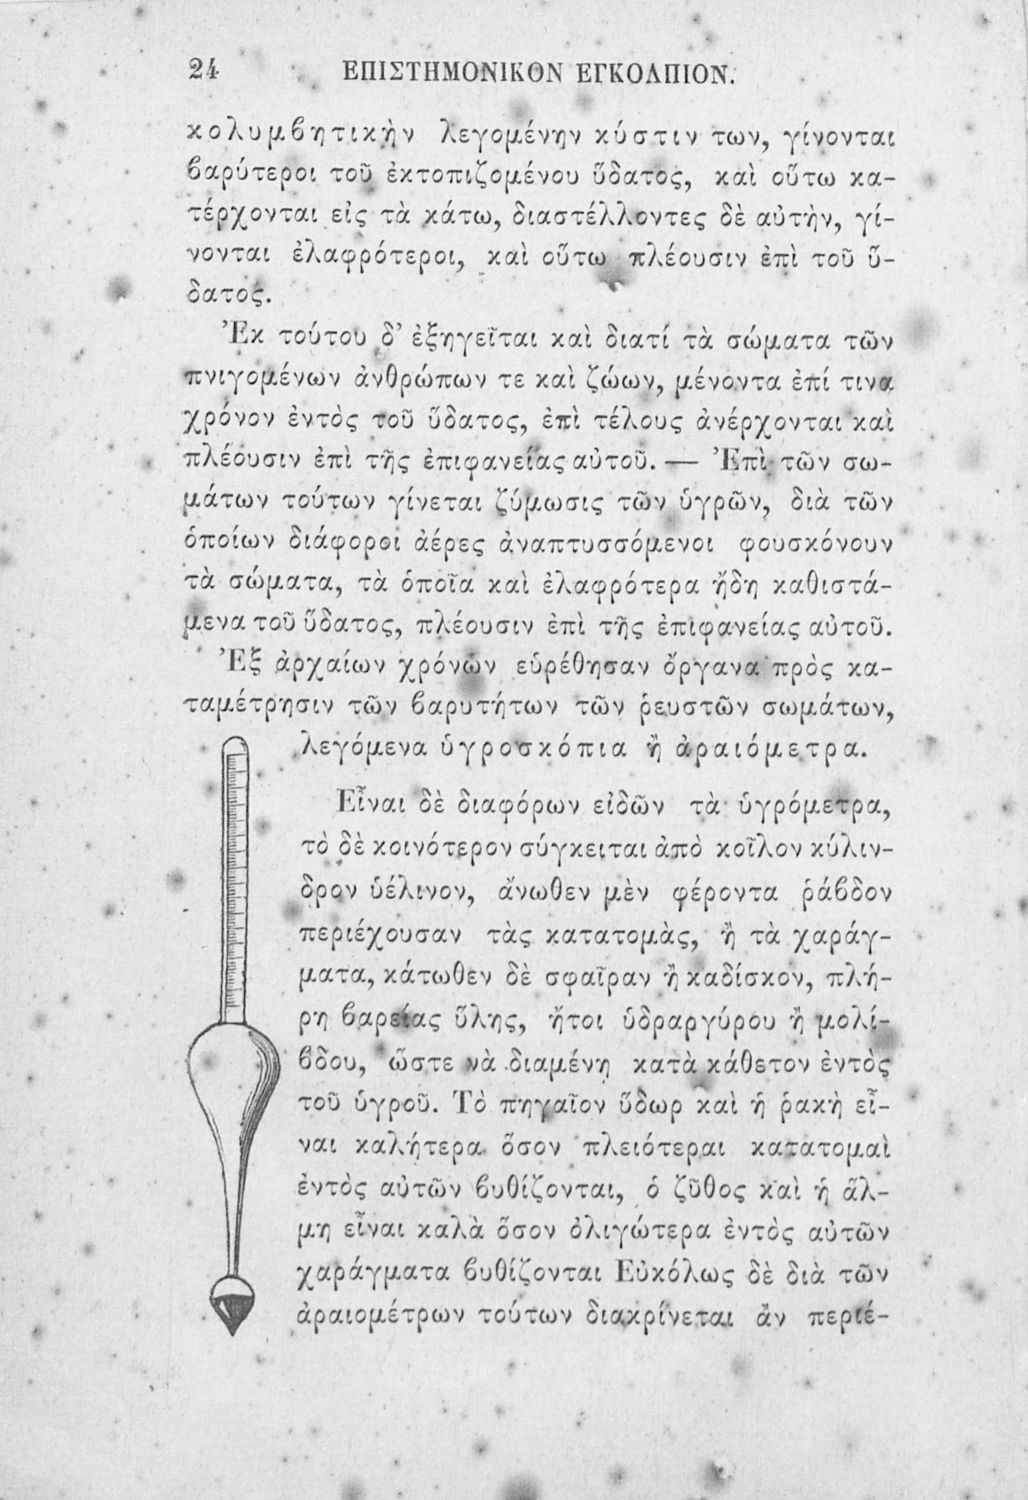 24 ΕΠΙΣΤΗΜΟΝΙΚΟΝ ΕΓΚΟΛΠΙΟΝ.
κολυμβητικὴν λεγομένην κύστιν των, γίνονται
βαρύτεροι τοῦ ἐκτοπιζομένου ὕδατος, καὶ οὕτω κα-
τέρχονται εἰς τὰ κάτω, διαστέλλοντες δὲ αὐτὴν, γί-
νονται ἐλαφρότεροι, καὶ οὕτω πλέουσιν ἐπὶ τοῦ ὕ-
δατος.
Ἐκ τούτου δ’ ἐξηγεῖται καὶ διατί τὰ σώματα τῶν
πνιγομένων ἀνθρώπων τε καὶ ζώων, μένοντα ἐπί τινα
χρόνον ἐντὸς τοῦ ὕδατος, ἐπὶ τέλους ἀνέρχονται καὶ
πλέουσιν ἐπὶ τῆς ἐπιφανείας αὐτοῦ. — Ἐπὶ τῶν σω-
μάτων τούτων γίνεται ζύμωσις τῶν ὑγρῶν, διὰ τῶν
ὁποίων διάφοροι ἀέρες ἀναπτυσσόμενοι φουσκόνουν
τὰ σώματα, τὰ ὁποῖα καὶ ἐλαφρότερα ἤδη καθιστά-
μενα τοῦ ὕδατος, πλέουσιν ἐπὶ τῆς ἐπιφανείας αὐτοῦ.
Ἐξ ἀρχαίων χρόνων εὑρέθησαν ὄργανα πρὸς κα-
ταμέτρησιν τῶν βαρυτήτων τῶν ῥευστῶν σωμάτων,
λεγόμενα ὑγροσκόπια ἢ ἀραιόμετρα.
Εἶναι δὲ διαφόρων εἰδῶν τὰ ὑγρόμετρα,
τὸ δὲ κοινότερον σύγκειται ἀπὸ κοῖλον κύλιν-
δρον ὑέλινον, ἄνωθεν μὲν φέροντα ῥάβδον
περιέχουσαν τὰς κατατομὰς, ἢ τὰ χαράγ-
ματα, κάτωθεν δὲ σφαῖραν ἢ καδίσκον, πλή-
ρη βαρείας ὕλης, ἤτοι ὑδραργύρου ἢ μολί-
βδου, ὥστε νὰ διαμένῃ κατὰ κάθετον ἐντὸς
τοῦ ὑγροῦ. Τὸ πηγαῖον ὕδωρ καὶ ἡ ῥακὴ εἶ-
ναι καλήτερα ὅσον πλειότεραι κατατομαὶ
ἐντὸς αὐτῶν βυθίζονται, ὁ ζῦθος καὶ ἡ ἅλ-
μη εἶναι καλὰ ὅσον ὀλιγώτερα ἐντὸς αὐτῶν
χαράγματα βυθίζονται Εὐκόλως δὲ διὰ τῶν
ἀραιομέτρων τούτων διακρίνεται ἂν περιέ-